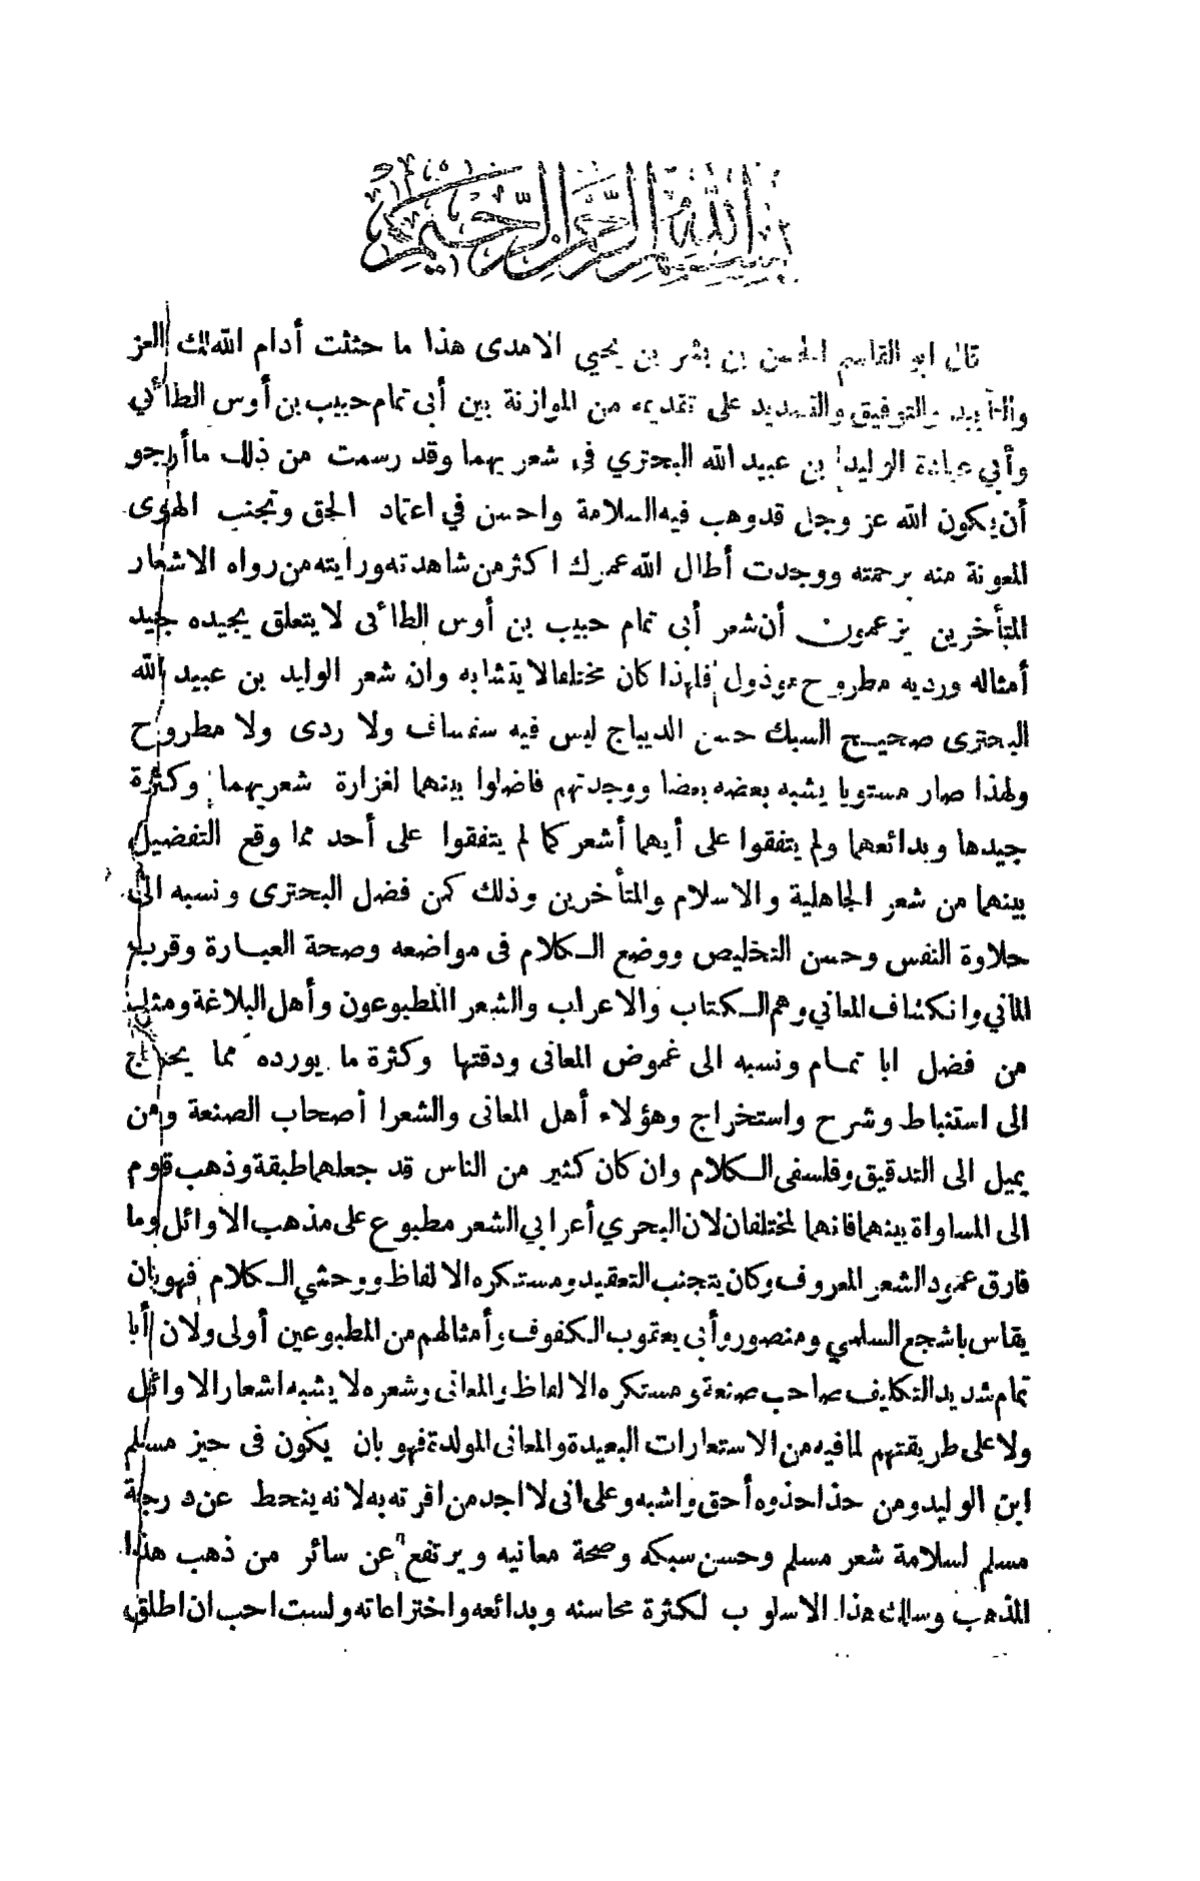 بسم الله الرحمن الرحيم
قال ابو القاسم الحسن بن بشر بن يحيى الامدى هذا ما حثثت أدام الله لك العز
والتأييد والتوفيق والتسديد على تقديمه من الموازنة بين أبى تمام حبيب بن أوس الطائي
وأبي عبادة الوليد بن عبيد الله البحتري في شعريهما وقد رسمت من ذلك ما أرجو
أن يكون الله عز وجل قد وهب فيه السلامة واحسن في اعتماد الحق وتجنب الهوى
المعونة منه برحمته ووجدت أطال الله عمرك اكثر من شاهدته ورايته من رواه الاشعار
المتأخرين يزعمون أن شعر أبى تمام حبيب بن أوس الطائى لا يتعلق بجيده جيد
أمثاله ورديه مطروح مرذول فلهذا كان مختلفا لا يتشابه وان شعر الوليد بن عبيد الله
البحترى صحيح السبك حسن الديباج ليس فيه سفساف ولا ردى ولا مطروح
ولهذا صار مستويا يشبه بعضه بعضا ووجدتهم فاضلوا بينهما لغزارة شعريهما وكثرة
جيدها وبدائعهما ولم يتفقوا على أيهما أشعر كما لم يتفقوا على أحد مما وقع التفضيل
بينهما من شعر الجاهلية والاسلام والمتأخرين وذلك كمن فضل البحترى ونسبه الى
حلاوة النفس وحسن التخليص ووضع الكلام فى مواضعه وصحة العبارة وقرب
المآتي وانكشاف المعاني وهم الكتاب والاعراب والشعر المطبوعون وأهل البلاغة ومثل
من فضل ابا تمام ونسبه الى غموض المعانى ودقتها وكثرة ما يورده مما يحتاج
الى استنباط وشرح واستخراج وهؤلاء أهل المعانى والشعرا أصحاب الصنعة ومن
يميل الى التدقيق وفلسفى الكلام وان كان كثير من الناس قد جعلهما طبقة وذهب قوم
الى المساواة بينهما فانهما لمختلفان لان البحري أعرابي الشعر مطبوع على مذهب الاوائل وما
فارق عمود الشعر المعروف وكان يتجنب التعقيد ومستكره الالفاظ ووحشي الكلام فهو بان
يقاس باشجع السلمي ومنصور وأبى يعقوب المكفوف وأمثالهم من المطبوعين أولى ولان أبا
تمام شديد التكليف صاحب صنعة ومستكره الالفاظ والمعانى وشعره لا يشبه اشعار الاوائل
ولا على طريقتهم لما فيه من الاستعارات البعيدة والمعانى المولدة فهو بان يكون فى حيز مسلم
ابن الوليد ومن حذا حذوه أحق واشبه وعلى انى لا اجد من اقرته به لانه ينحط عن درجة
مسلم لسلامة شعر مسلم وحسن سبكه وصحة معانيه ويرتفع عن سائر من ذهب هذا
المذهب وسلك هذا الاسلوب لكثرة محاسنه وبدائعه واختراعاته ولست احب ان اطلق